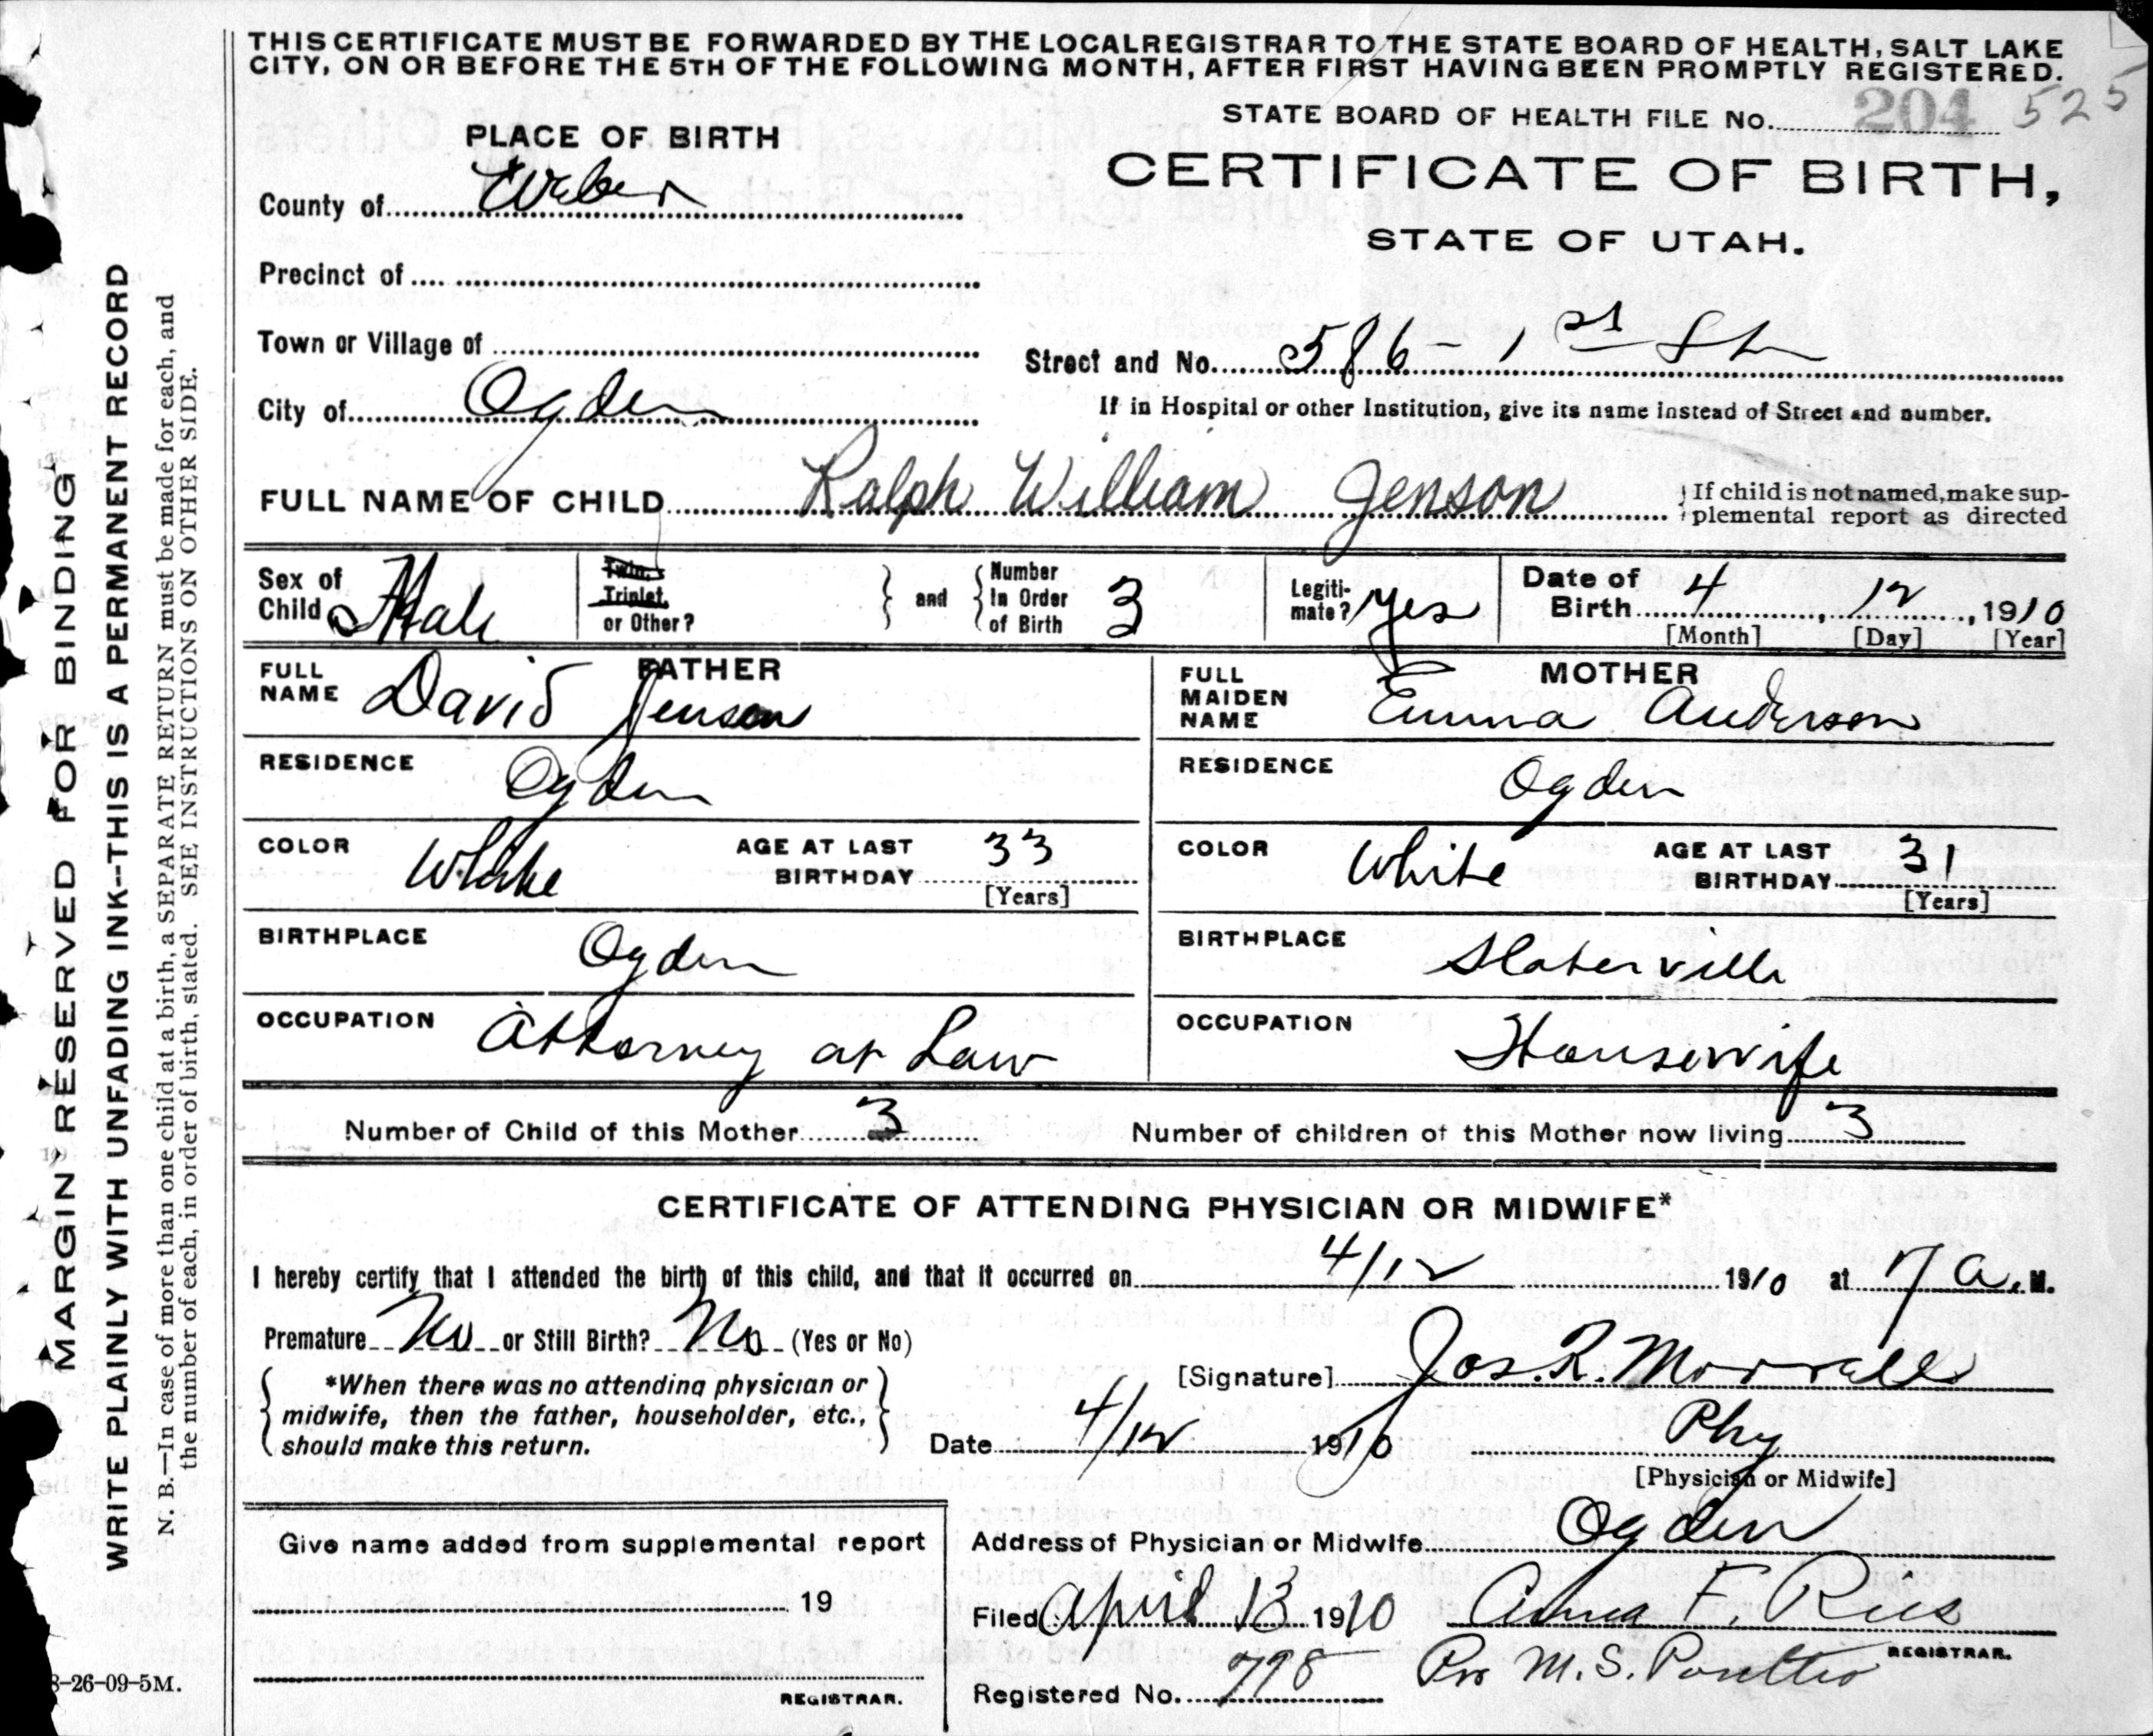 THIS CERTIFICATE MUST BE FORWARDED BY THE LOCAL REGISTRAR TO THE STATE BOARD OF HEALTH, SALT LAKE
CITY, ON OR BEFORE THE 5TH OF THE FOLLOWING MONTH, AFTER FIRST HAVING BEEN PROMPTLY REGISTERED.
STATE BOARD OF HEALTH FILE No. 204 525
PLACE OF BIRTH
CERTIFICATE OF BIRTH,
County of Weber
STATE OF UTAH.
Precinct of
Town or Village of
Street and No. 586 - 1st St
City of Ogden
If in Hospital or other Institution, give its name instead of Street and number.
FULL NAME OF CHILD Ralph William Jenson
If child is not named, make sup-
plemental report as directed
Sex of Child Male
Twin,
Triplet,
or Other?
and
Number In Order of Birth 3
Legiti-mate? Yes
Date of Birth 4, 12, 1910
[Month] [Day] [Year]
FATHER
FULL NAME David Jenson
RESIDENCE Ogden
COLOR White AGE AT LAST BIRTHDAY 33
[Years]
BIRTHPLACE Ogden
OCCUPATION Attorney at Law
MOTHER
FULL MAIDEN NAME Emma Anderson
RESIDENCE Ogden
COLOR White AGE AT LAST BIRTHDAY 31
[Years]
BIRTHPLACE Slaterville
OCCUPATION Housewife
Number of Child of this Mother 3 Number of children of this Mother now living 3
CERTIFICATE OF ATTENDING PHYSICIAN OR MIDWIFE*
I hereby certify that I attended the birth of this child, and that it occurred on 4/12 1910 at 7 a. M.
Premature No or Still Birth? No (Yes or No)
[Signature] Jos. R. Morrell
*When there was no attending physician or
midwife, then the father, householder, etc.,
should make this return.
Date 4/12 1910 Phy
[Physician or Midwife]
Give name added from supplemental report
19
REGISTRAR.
Address of Physician or Midwife Ogden
Filed April 13 1910 Anna F. Ries
REGISTRAR.
Registered No. 798 Per M. S.
MARGIN RESERVED FOR BINDING
WRITE PLAINLY WITH UNFADING INK--THIS IS A PERMANENT RECORD
N. B.—In case of more than one child at a birth, a SEPARATE RETURN must be made for each, and
the number of each, in order of birth, stated. SEE INSTRUCTIONS ON OTHER SIDE.
8-26-09-5M.